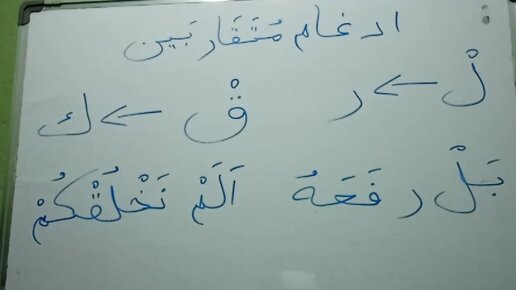 ادغام مُتَقَارِبَين
لْ ← ر
قْ ← ك
بَلْ رفَعَهُ
اَلَمْ نَخْلُقْكُمْ